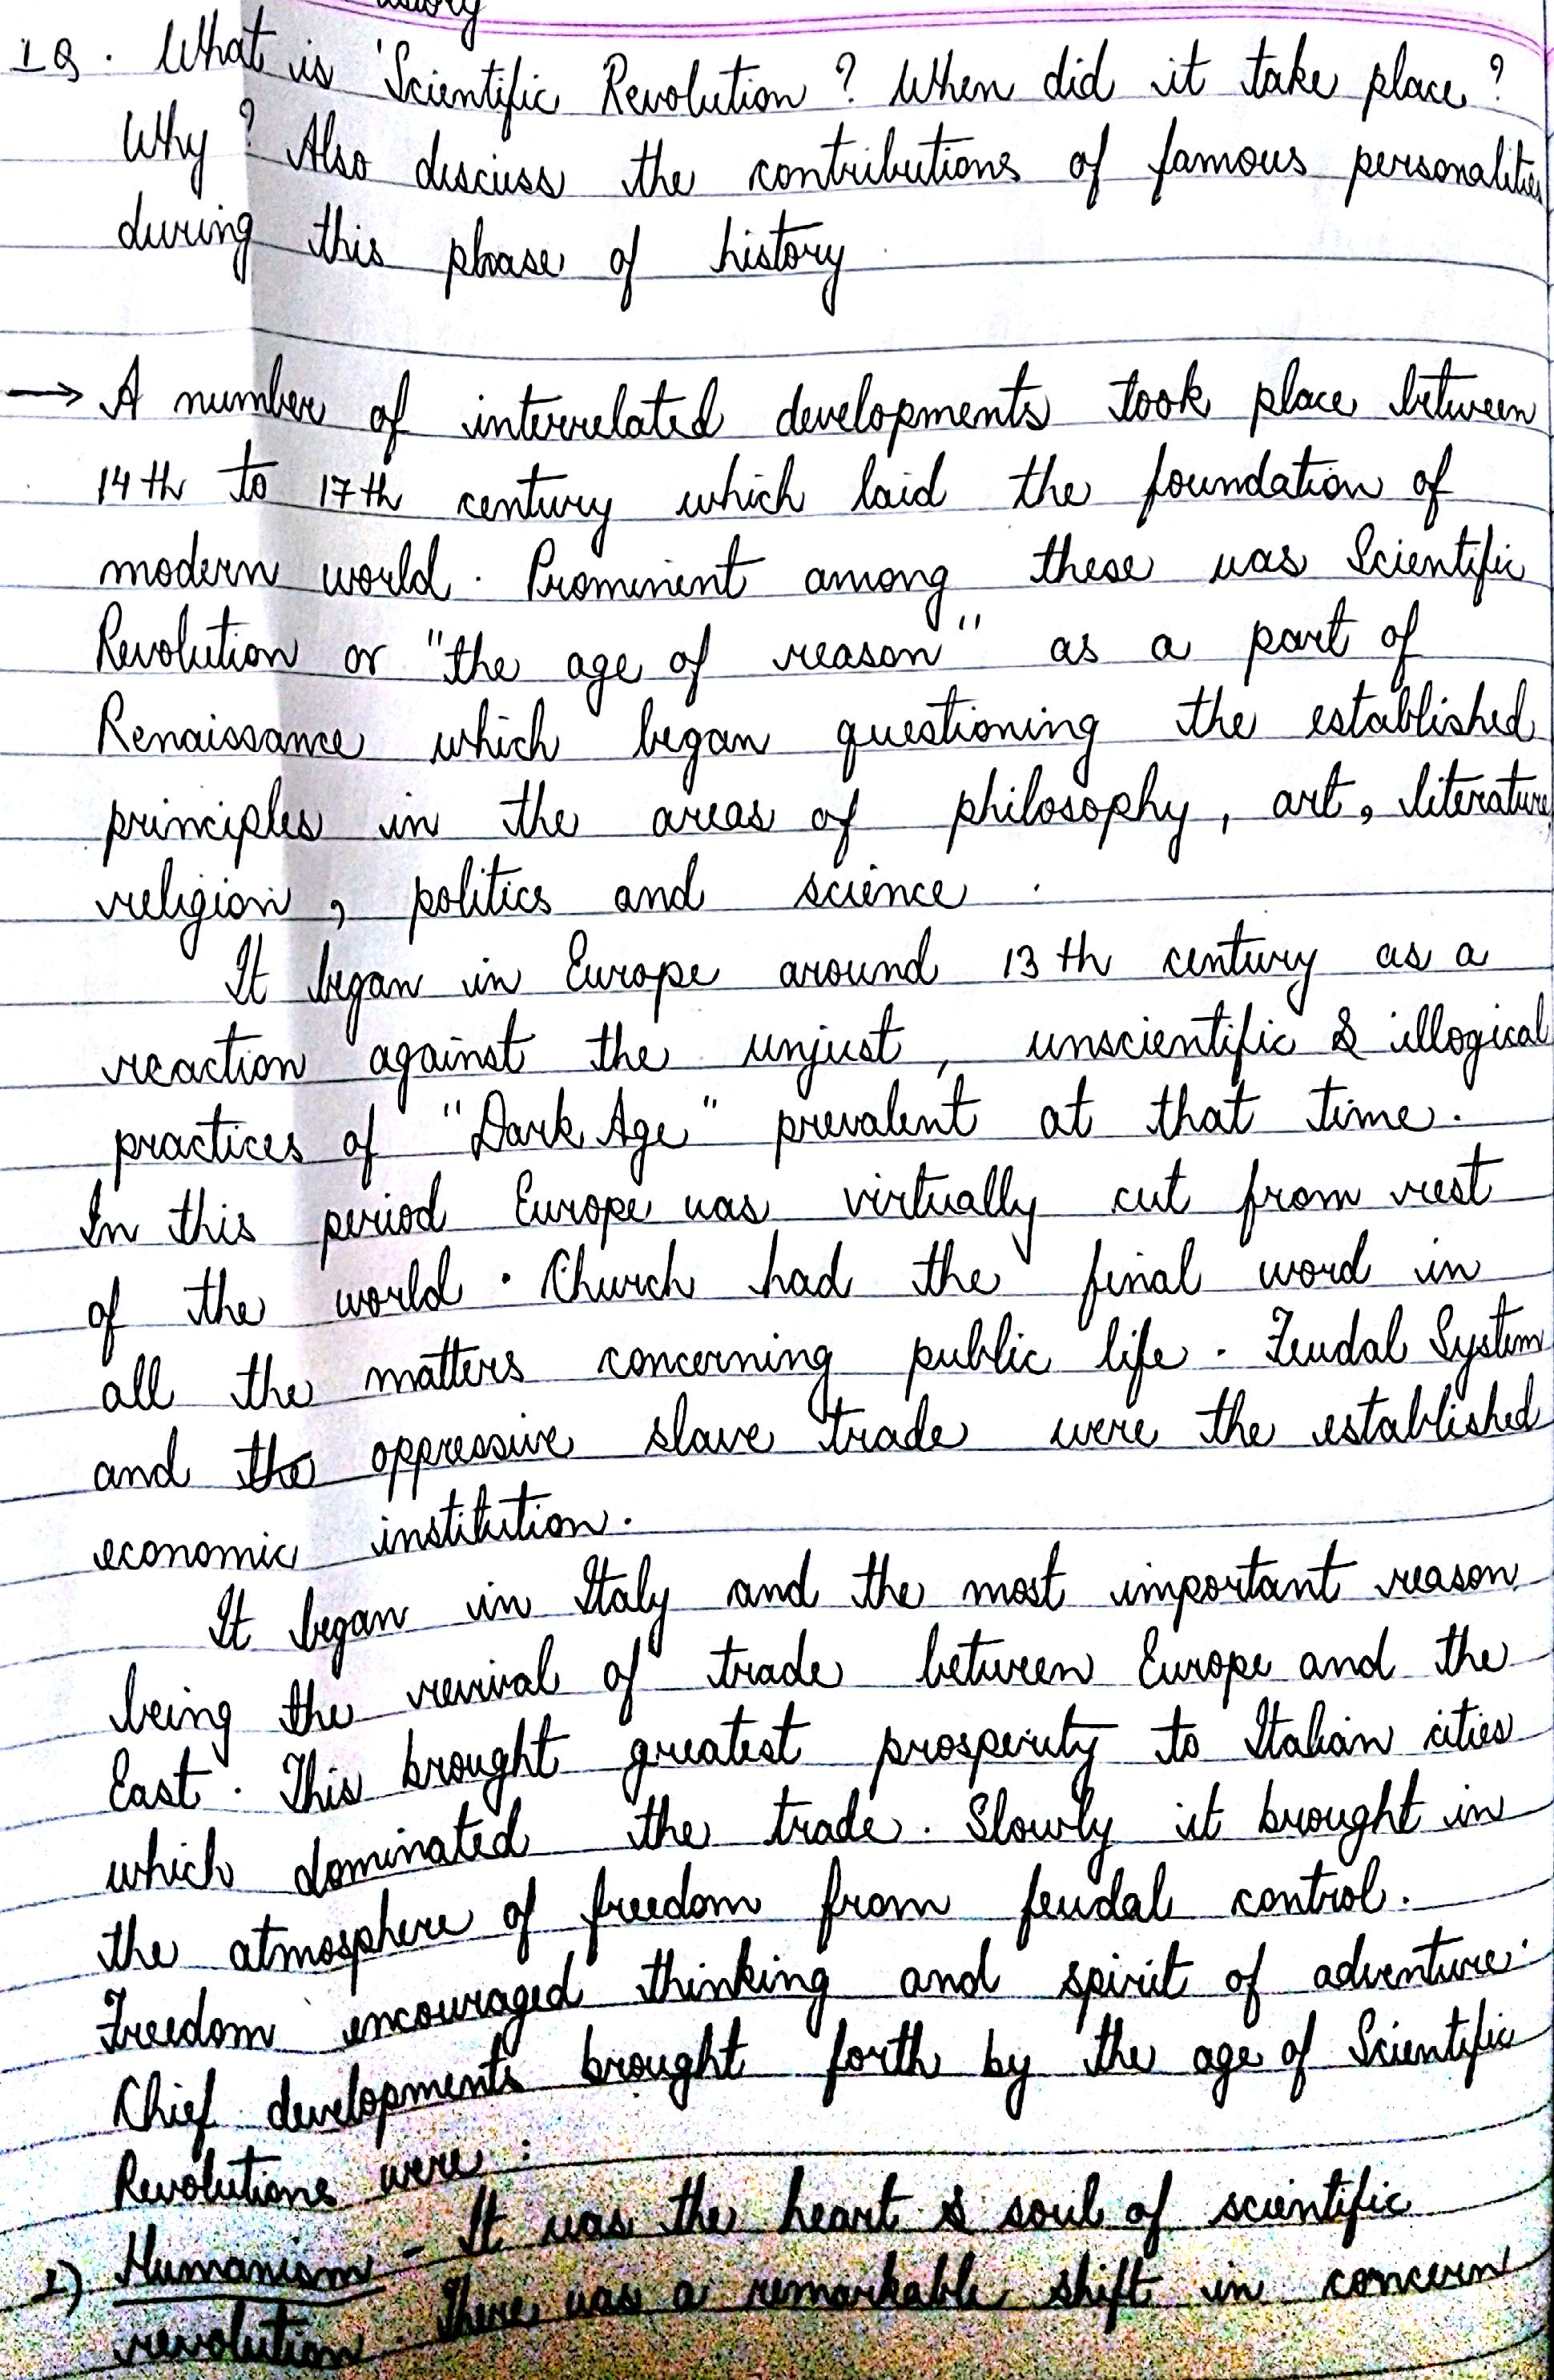 1Q. What is 'Scientific Revolution? When did it take place?
Why? Also discuss the contributions of famous personalities
during this phase of history
→ A number of interrelated developments took place between
14th to 17th century which laid the foundation of
modern world. Prominent among these was Scientific
Revolution or "the age of reason" as a part of
Renaissance which began questioning the established
principles in the areas of philosophy, art, literature
religion, politics and science.
It began in Europe around 13th century as a
reaction against the unjust, unscientific & illogical
practices of "Dark Age" prevalent at that time.
In this period Europe was virtually cut from rest
of the world. Church had the final word in
all the matters concerning public life. Feudal System
and the oppressive slave trade were the established
economic institution.
It began in Italy and the most important reason
being the revival of trade between Europe and the
East. This brought greatest prosperity to Italian cities
which dominated the trade. Slowly it brought in
the atmosphere of freedom from feudal control.
Freedom encouraged thinking and spirit of adventure.
Chief developments brought forth by the age of Scientific
Revolutions were:
1) Humanism - It was the heart & soul of scientific
revolution. There was a remarkable shift in concern